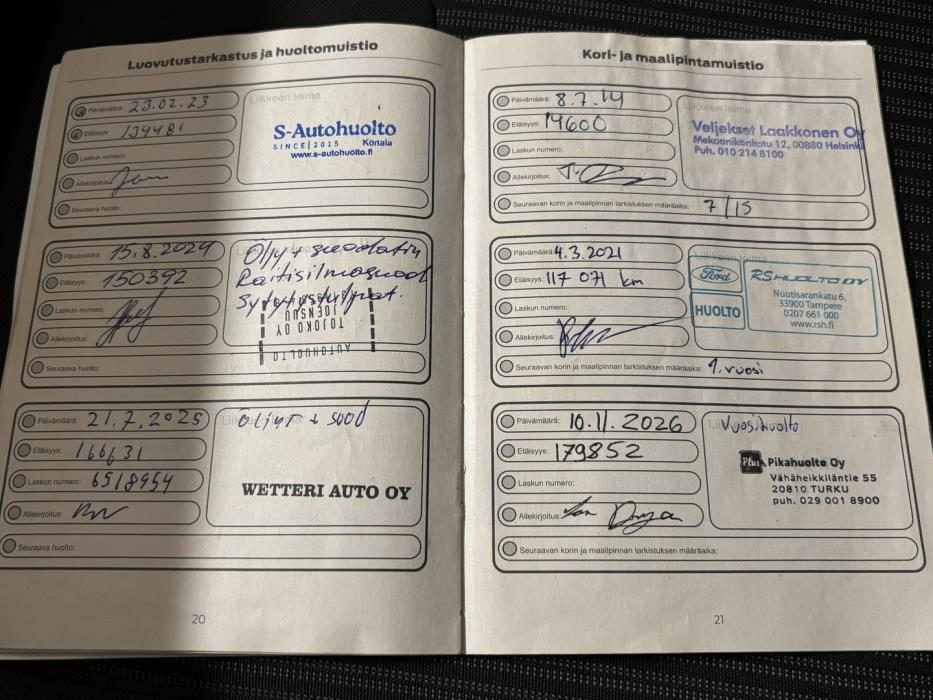 Luovutustarkastus ja huoltomuistio
Päivämäärä: 23.02.23
Etäisyys: 134481
Laskun numero:
Allekirjoitus:
Seuraava huolto:
Liikkeen leima
S-Autohuolto
SINCE|2015 Konala
www.s-autohuolto.fi
Päivämäärä: 15.8.2024
Etäisyys: 150392
Laskun numero:
Allekirjoitus:
Seuraava huolto:
Öljy + suodatin
Raitisilmasuod
Sytytystulpat.
JOENSUU
TOJOKO OY
AUTOHUOLTO
Päivämäärä: 21.7.2025
Etäisyys: 166631
Laskun numero: 6518954
Allekirjoitus:
Seuraava huolto:
Öljyt + suod
WETTERI AUTO OY
20
Kori- ja maalipintamuistio
Päivämäärä: 8.7.14
Etäisyys: 14600
Laskun numero:
Allekirjoitus:
Seuraavan korin ja maalipinnan tarkistuksen määräaika: 7/15
Liikkeen leima
Veljekset Laakkonen Oy
Mekaanikonkatu 12, 00880 Helsinki
Puh. 010 214 8100
Päivämäärä: 4.3.2021
Etäisyys: 117 071 km
Laskun numero:
Allekirjoitus:
Seuraavan korin ja maalipinnan tarkistuksen määräaika: 1. vuosi
Liikkeen leima
Ford
HUOLTO
RS HUOLTO OY
Nuutisarankatu 6,
33900 Tampere
0207 661 000
www.rsh.fi
Päivämäärä: 10.11.2026
Etäisyys: 179852
Laskun numero:
Allekirjoitus:
Seuraavan korin ja maalipinnan tarkistuksen määräaika:
Vuosihuolto
Plus Pikahuolto Oy
Vähäheikkiläntie 55
20810 TURKU
puh. 029 001 8900
21